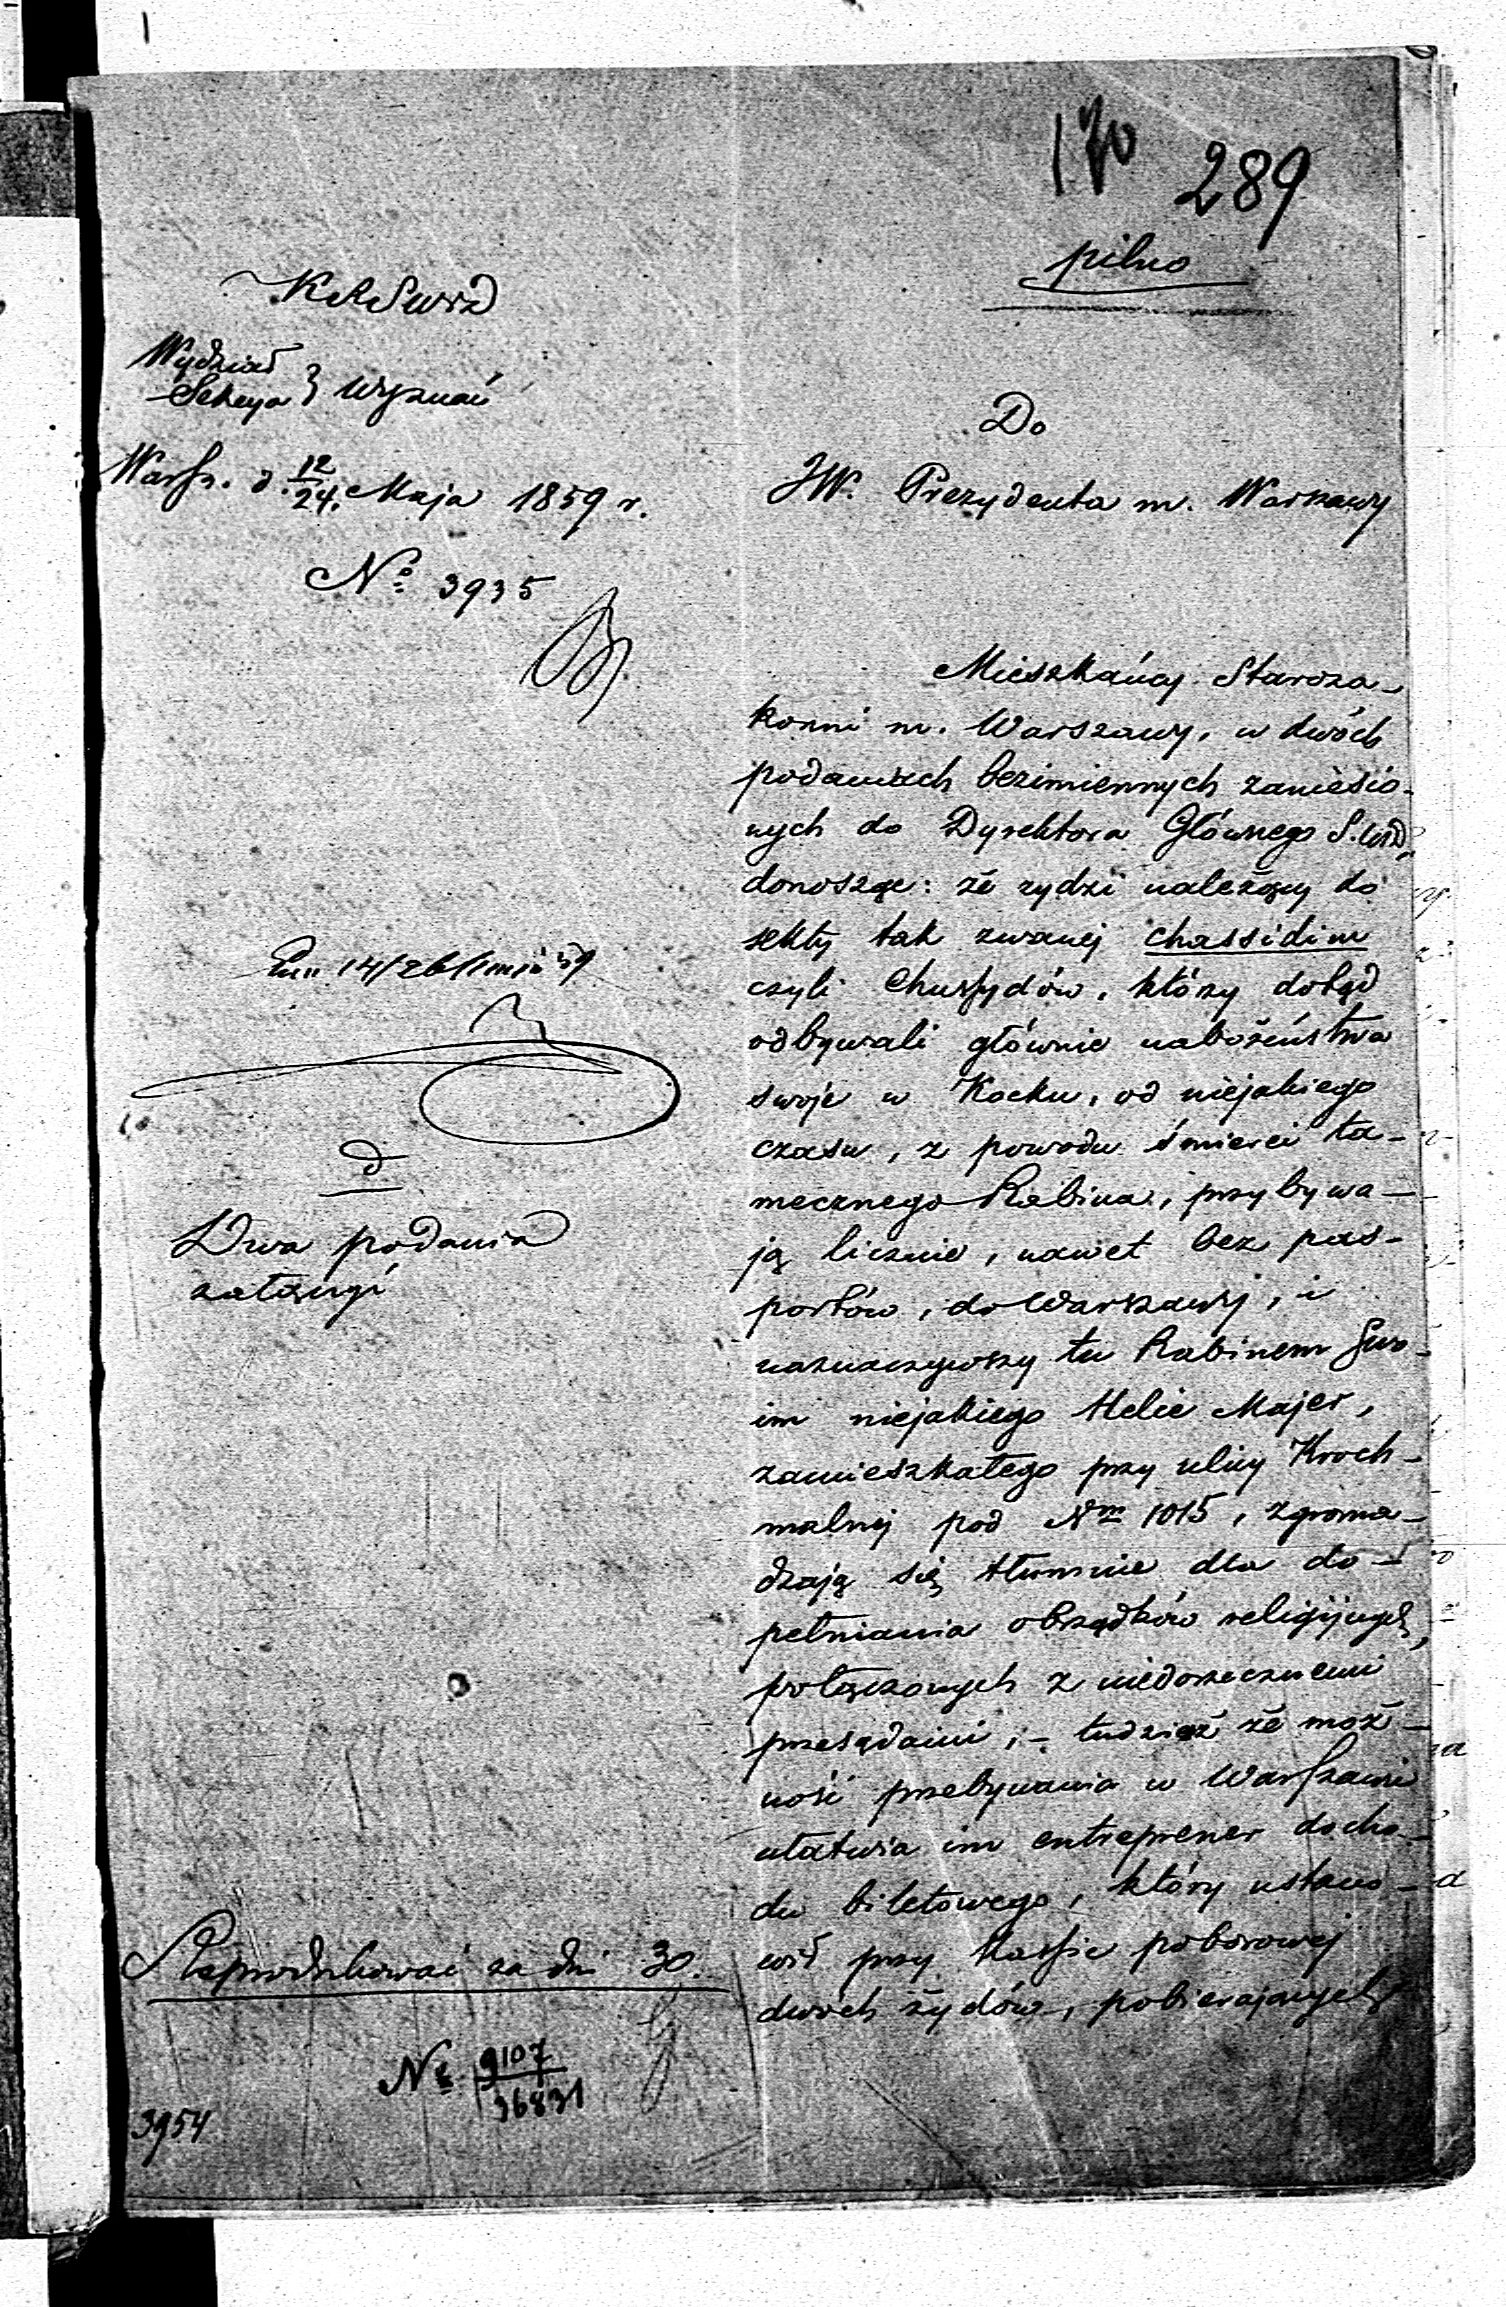 170 289
pilno
KRSWiD
Wydział
Sekcya } Wyznań
Warsz. d. 12/24. Maja 1859 r.
No 3935
Do
JW. Prezydenta m. Warszawy
Mieszkańcy Staroza-
konni m. Warszawy, w dwóch
podaniach bezimiennych zaniesio-
nych do Dyrektora Głównego S. W. i D.,
donosząc: że żydzi należący do
sekty tak zwanej chassidim
czyli Chussydów, którzy dotąd
odbywali głównie nabożeństwa
swoje w Kocku, od niejakiego
czasu, z powodu śmierci ta-
mecznego Rabina, przybywa-
ją licznie, nawet bez pas-
portów, do Warszawy, i
naznaczywszy tu Rabinem swo-
im niejakiego Helie Majer,
zamieszkałego przy ulicy Kroch-
malnej pod Nm 1015, zgroma-
dzają się tłumnie dla do-
pełniania obrządków religijnych,
połączonych z niedorzecznemi
przesądami; - tudzież że moż-
ność przebywania w Warszawie
ułatwia im entreprener docho-
du biletowego, który ustano-
wił przy kassie poborowej
dwóch żydów, pobierających
14/26
d
Dwa podania
załączyć
Reprodukować za dni 30.
No 9107/36831
3954